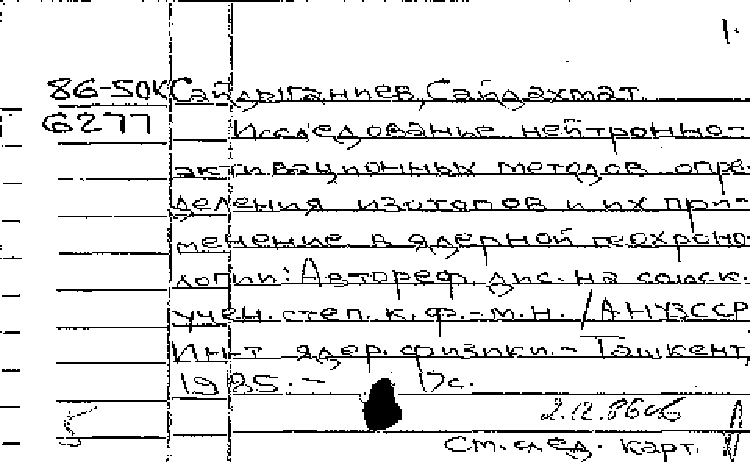 1.
86-50К Сайдыганиев, Сайдахмат.
6277 Исследование нейтронно-
активационных методов опре-
деления изотопов и их при-
менение в ядерной геохроно-
логии: Автореф. дис. на соиск.
учен. степ. к. ф.-м.н. / АН УзССР
Ин-т ядер. физики. - Ташкент,
1985. - 17с.
2.12.86
См. след. карт.